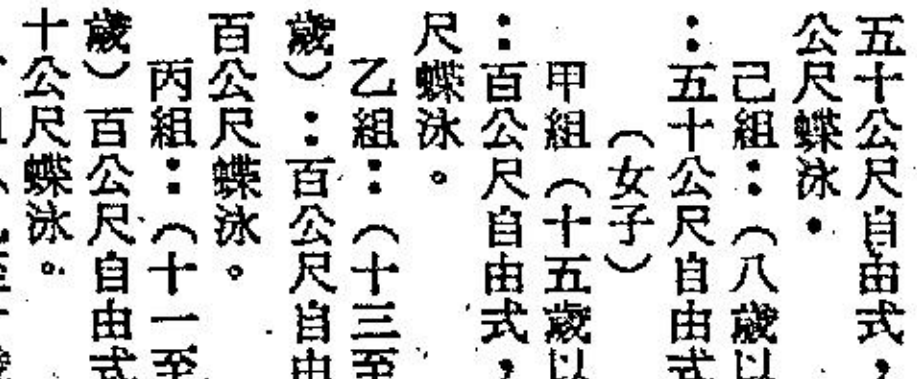 五十公尺自由式，
公尺蝶泳．
己組：（八歲以
：五十公尺自由式
（女子）
甲組（十五歲以
：百公尺自由式，
尺蝶泳。
乙組：（十三至
歲）：百公尺自由
百公尺蝶泳。
丙組：（十一至
歲）百公尺自由式
十公尺蝶泳。